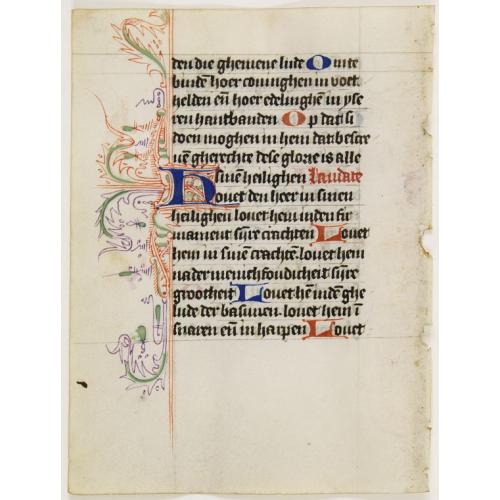 den die ghemene lude O m te
bindē hoer coninghen in voet
helden eñ hoer edelinghē in yse
ren hantbanden O p dat si
doen moghen in hem dat bescre
uē gherechte dese glorie is alle
sinē heilighen Laudate
Louet den heer in sinen
heilighen louet hem in den fir
mament sijre crachten Louet
hem in sinē crachtē louet hem
na der menichfoudicheit sijre
grootheit Louet hē in dē ghe
lude der basunen louet hem ī
snaren eñ in harpen Louet